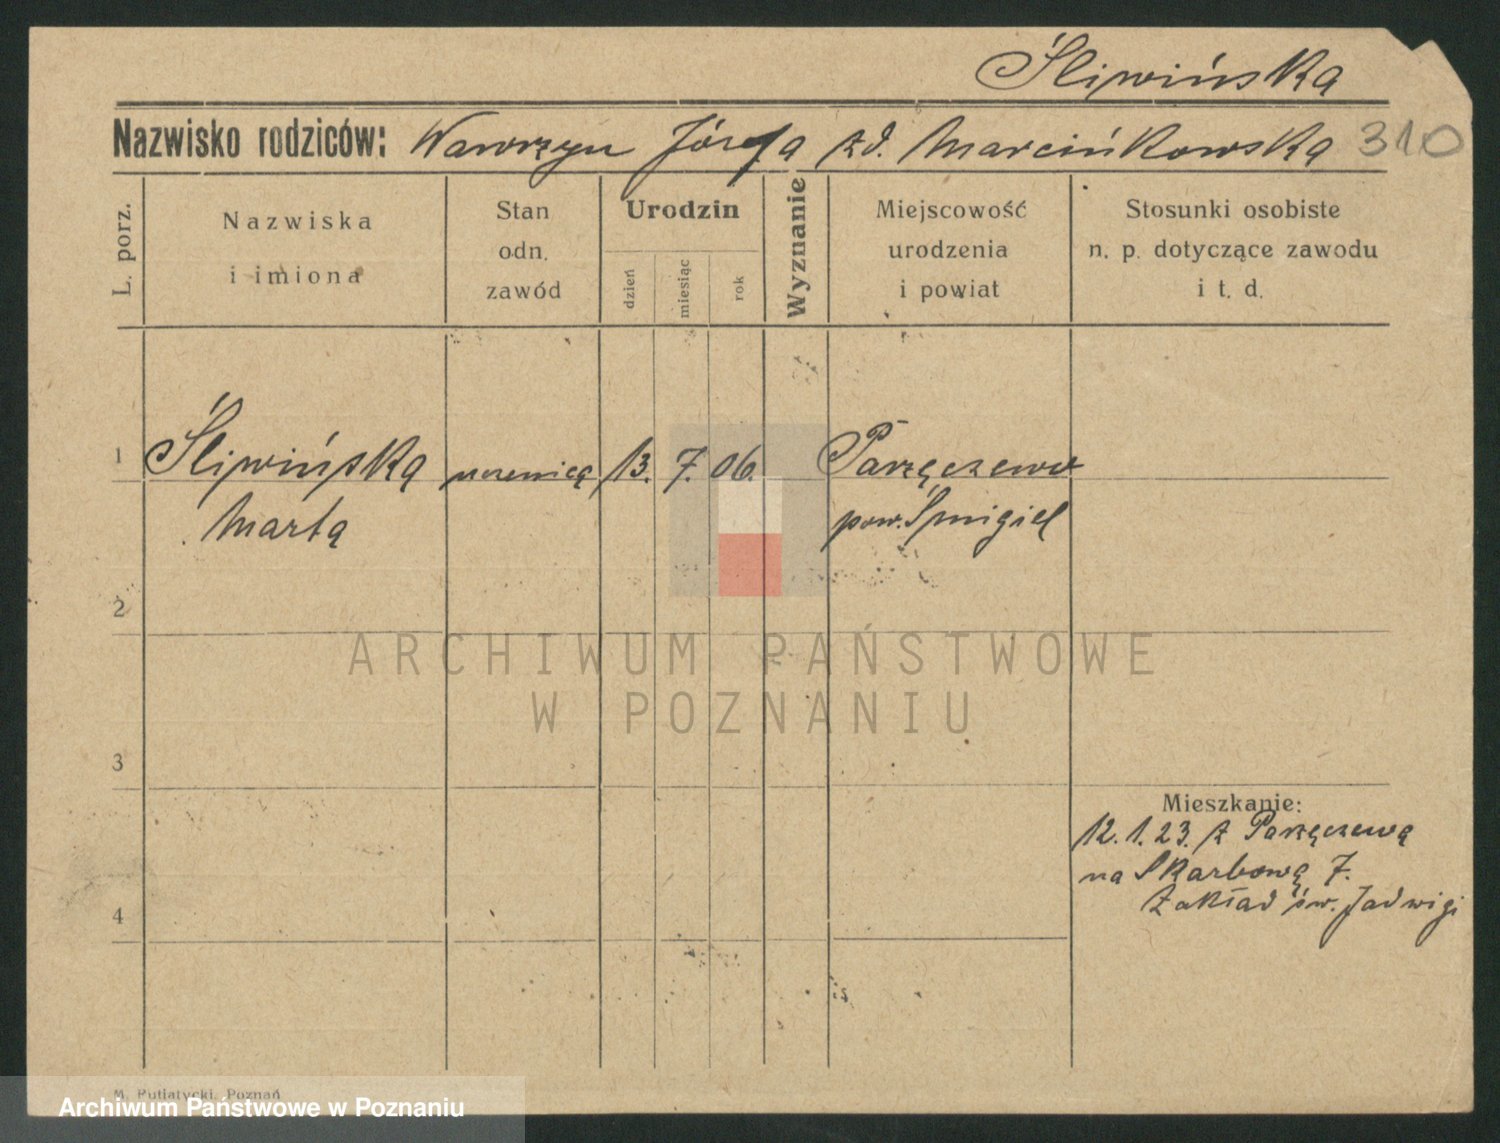 Śliwińska
Nazwisko rodziców: Wawrzyn Józefa zd. Marcińkowska 310
L. porz.
Nazwiska
i imiona
Stan
odn.
zawód
Urodzin
dzień
miesiąc
rok
Wyznanie
Miejscowość
urodzenia
i powiat
Stosunki osobiste
n. p. dotyczące zawodu
i t. d.
1 Śliwińska uczenica 13. 7. 06. Parzęczewo
Marta pow. Śmigiel
2
ARCHIWUM PAŃSTWOWE
W POZNANIU
3
Mieszkanie:
12.1.23. z Parzęczewa
na Skarbową 7.
Zakład św. Jadwigi
4
M. Putiatycki, Poznań
Archiwum Państwowe w Poznaniu